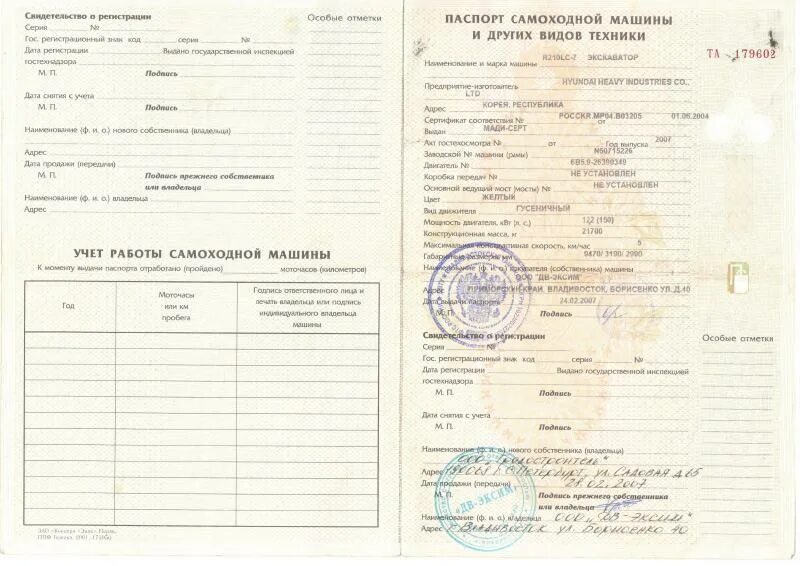 Свидетельство о регистрации
Особые отметки
Серия № 
Гос. регистрационный знак код серия №
Дата регистрации Выдано государственной инспекцией
гостехнадзора
М. П. Подпись
Дата снятия с учета
М. П. Подпись
Наименование (ф. и. о.) нового собственника (владельца)
Адрес
Дата продажи (передачи)
М. П. Подпись прежнего собственника
или владельца
Наименование (ф. и. о.) владельца
Адрес
УЧЕТ РАБОТЫ САМОХОДНОЙ МАШИНЫ
К моменту выдачи паспорта отработано (пройдено) моточасов (километров)
Год
Моточасы
или км
пробега
Подпись ответственного лица и
печать владельца или подпись
индивидуального владельца
машины
ПАСПОРТ САМОХОДНОЙ МАШИНЫ
И ДРУГИХ ВИДОВ ТЕХНИКИ
ТА 179602
Наименование и марка машины R210LC-7 ЭКСКАВАТОР
Предприятие-изготовитель HYUNDAI HEAVY INDUSTRIES CO.,
LTD
Адрес КОРЕЯ, РЕСПУБЛИКА
Сертификат соответствия № РОССKR.МР04.В03205 от 01.06.2004
Выдан МАДИ-СЕРТ
Акт гостехосмотра № от Год выпуска 2007
Заводской № машины (рамы) N60715226
Двигатель № 6B5.9-26390349
Коробка передач № НЕ УСТАНОВЛЕН
Основной ведущий мост (мосты) № НЕ УСТАНОВЛЕН
Цвет ЖЕЛТЫЙ
Вид движителя ГУСЕНИЧНЫЙ
Мощность двигателя, кВт (л. с.) 112 (150)
Конструкционная масса, кг 21700
Максимальная конструктивная скорость, км/час 5
Габаритные размеры мм 9470/ 3190/ 2990
Наименование (ф. и. о.) покупателя (собственника) машины
ООО "ДВ-ЭКСИМ"
Адрес ПРИМОРСКИЙ КРАЙ, ВЛАДИВОСТОК, БОРИСЕНКО УЛ. Д.40
Дата выдачи паспорта 24.02.2007
М. П. Подпись
Свидетельство о регистрации
Особые отметки
Серия №
Гос. регистрационный знак код серия №
Дата регистрации Выдано государственной инспекцией
гостехнадзора
М. П. Подпись
Дата снятия с учета
М. П. Подпись
Наименование (ф. и. о.) нового собственника (владельца)
ООО
Адрес 190068 г. С-Петербург, ул. Садовая д.
Дата продажи (передачи) 28.02.2007
Подпись прежнего собственника
или владельца
Наименование (ф. и. о.) владельца ООО "ДВ-ЭКСИМ"
Адрес г. Владивосток ул. Борисенко 40
«ДВ-ЭКСИМ»